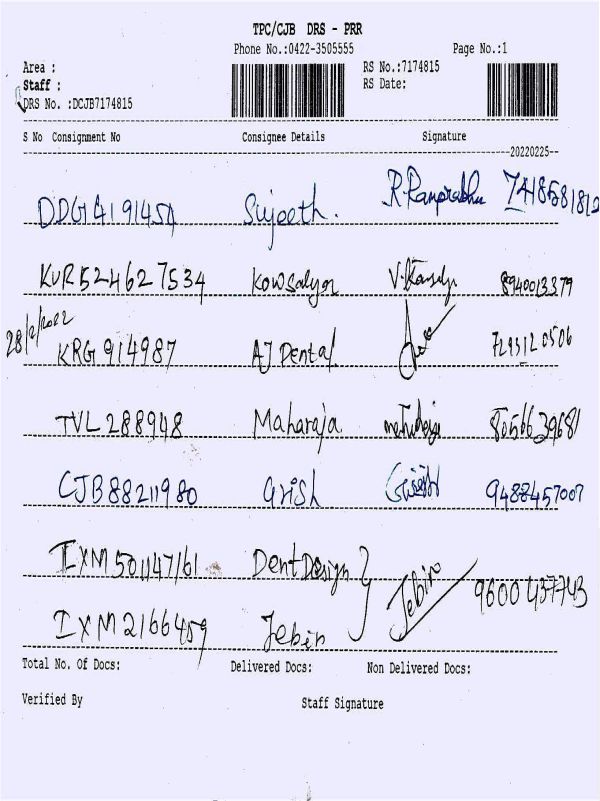 TPC/CJB DRS - PRR
Phone No.:0422-3505555 Page No.:1
Area : RS No.:7174815
Staff : RS Date:
DRS No. :DCJB7174815
S No Consignment No Consignee Details Signature
20220225
DDG4191454 Sujeeth. R. Ramprabhu 7418581812
KUR524627534 Kowsalya 8940013379
28/2/2022
KRG 914987 AJ Dental 7293120506
TVL 288948 Maharaja 8056639681
CJB88211980 Grish 9488457007
IXM501147161 Dent Design
Jebin 9600437743
IXM2166459 Jebin
Total No. Of Docs: Delivered Docs: Non Delivered Docs:
Verified By Staff Signature